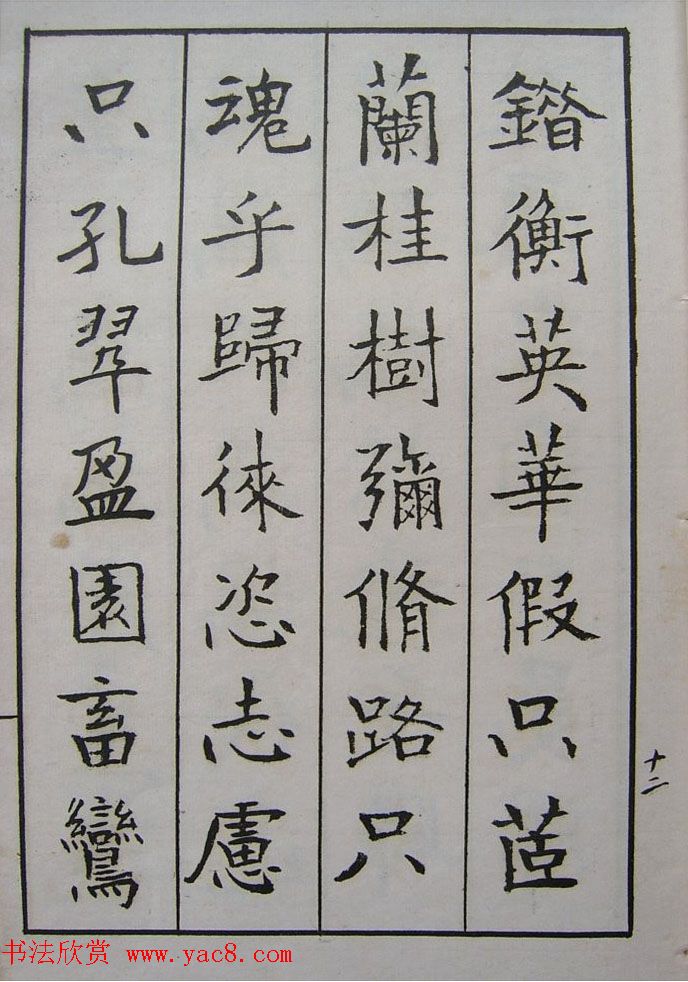 鐕衡英華假只茝
蘭桂樹彌脩路只
魂乎歸徠恣志慮
只孔翠盈園畜鸞
十二
书法欣赏 www.yac8.com